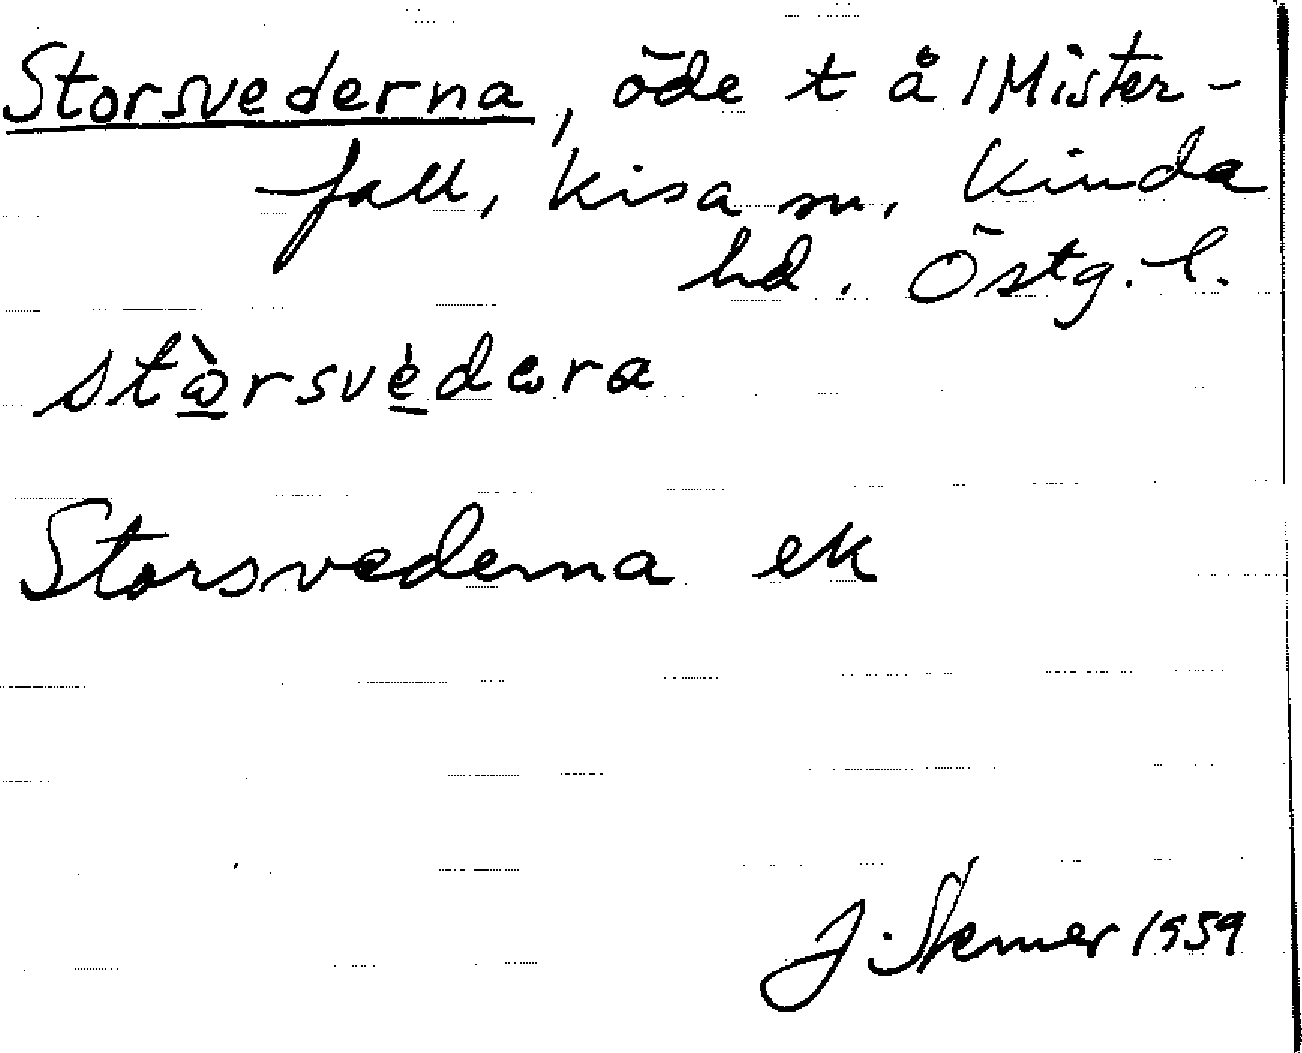 Storsvederna, öde t å 1 Mister-
fall, Kisa sn, Kinda
hd. Östg. l.
stòrsvèdəra
Storsvederna ek
J. Stemer 1959